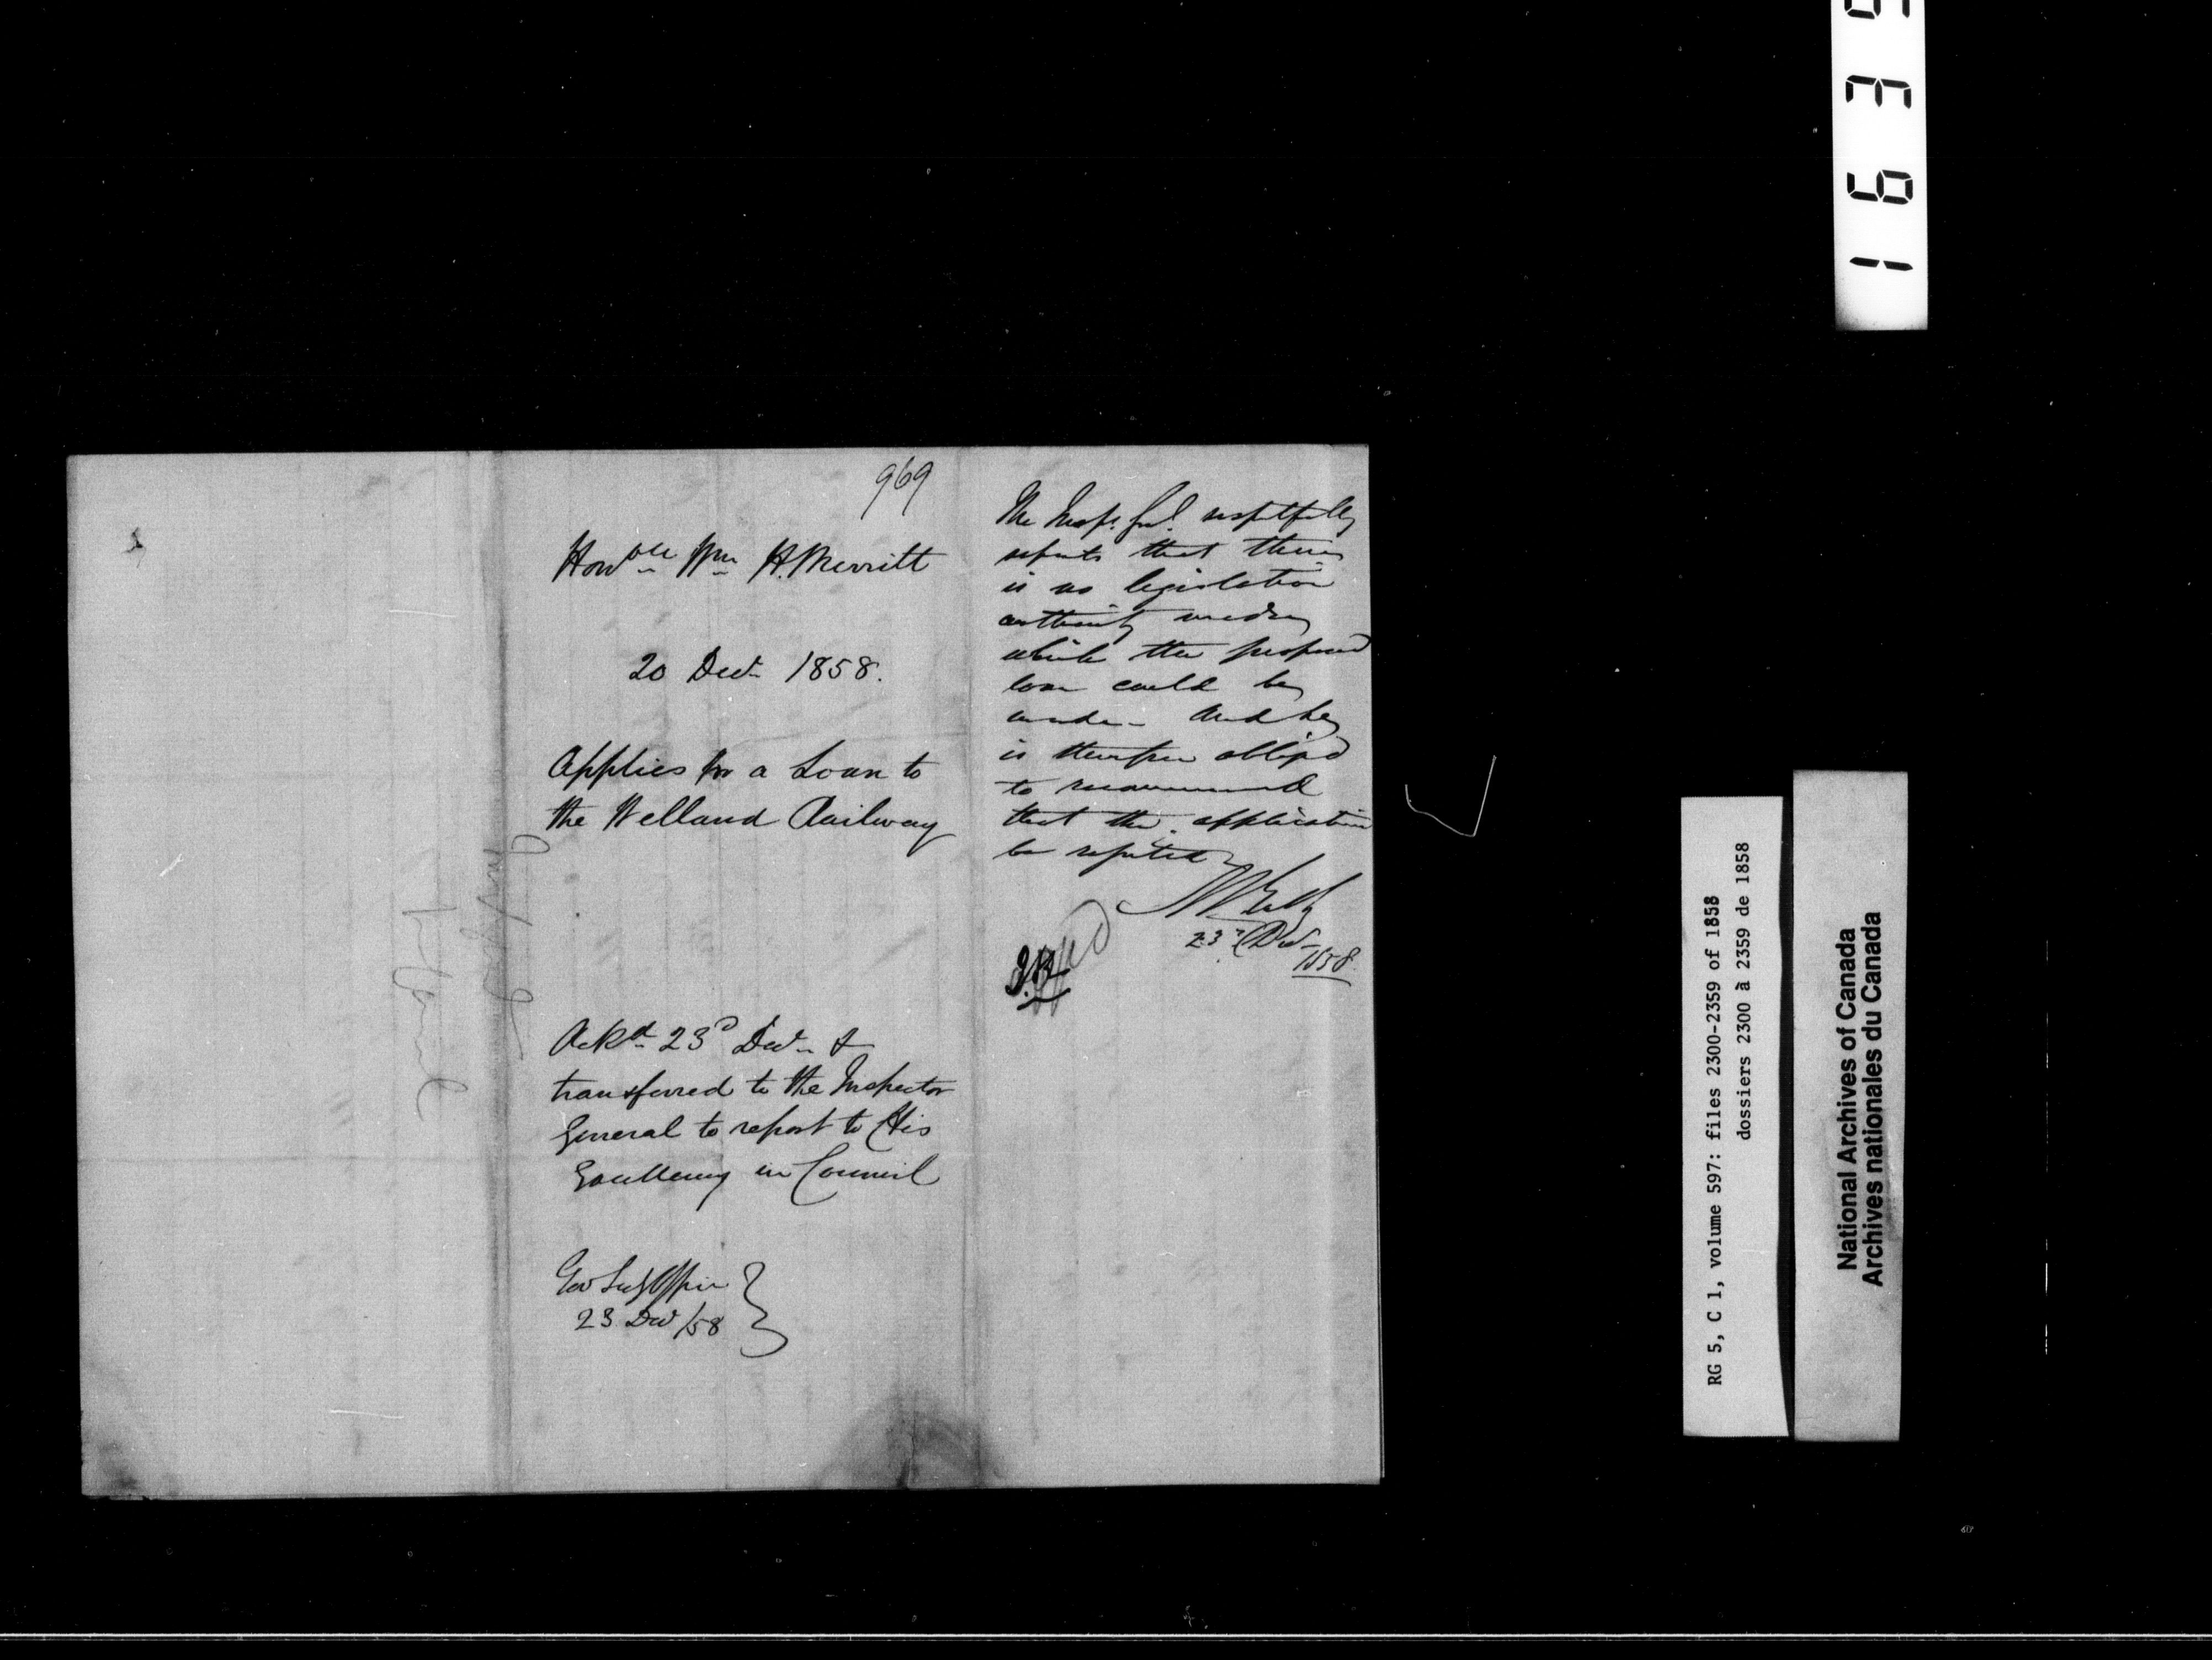 969
Honble Wm H. Merritt
20 Decr 1858.
Applies for a Loan to
the Welland Railway
Ackd 23d Decr &
transferred to the Inspector
General to report to His
Excellency in Council
Gov Secy Office
23 Decr /58
The Insp. Genl. respectfully
reports that there
is no legislative
authority under
which the proposed
loan could be
made - And he
is therefore obliged
to recommend
that the application
be rejected
23d Decr
1858
1 6 3 5
RG 5, C 1, volume 597: files 2300-2359 of 1858
dossiers 2300 à 2359 de 1858
National Archives of Canada
Archives nationales du Canada